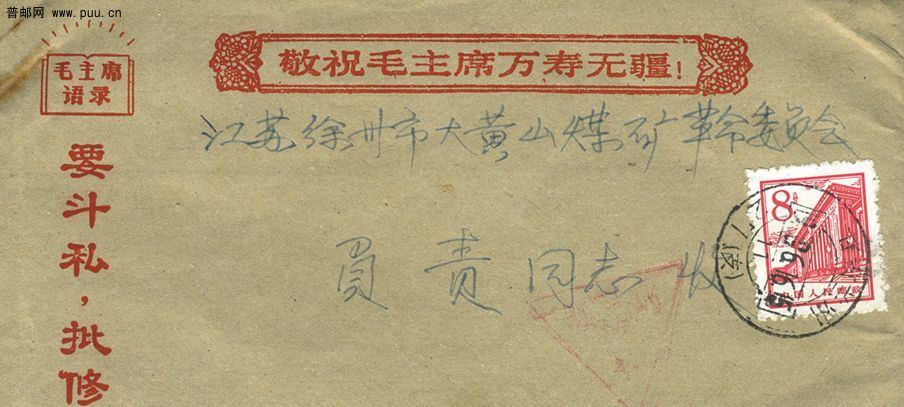 普邮网 www.puu.cn
敬祝毛主席万寿无疆!
毛主席
语录
江苏徐州市大黄山煤矿革命委员会
要斗私,批修
员责同志收
8
中国人民邮政